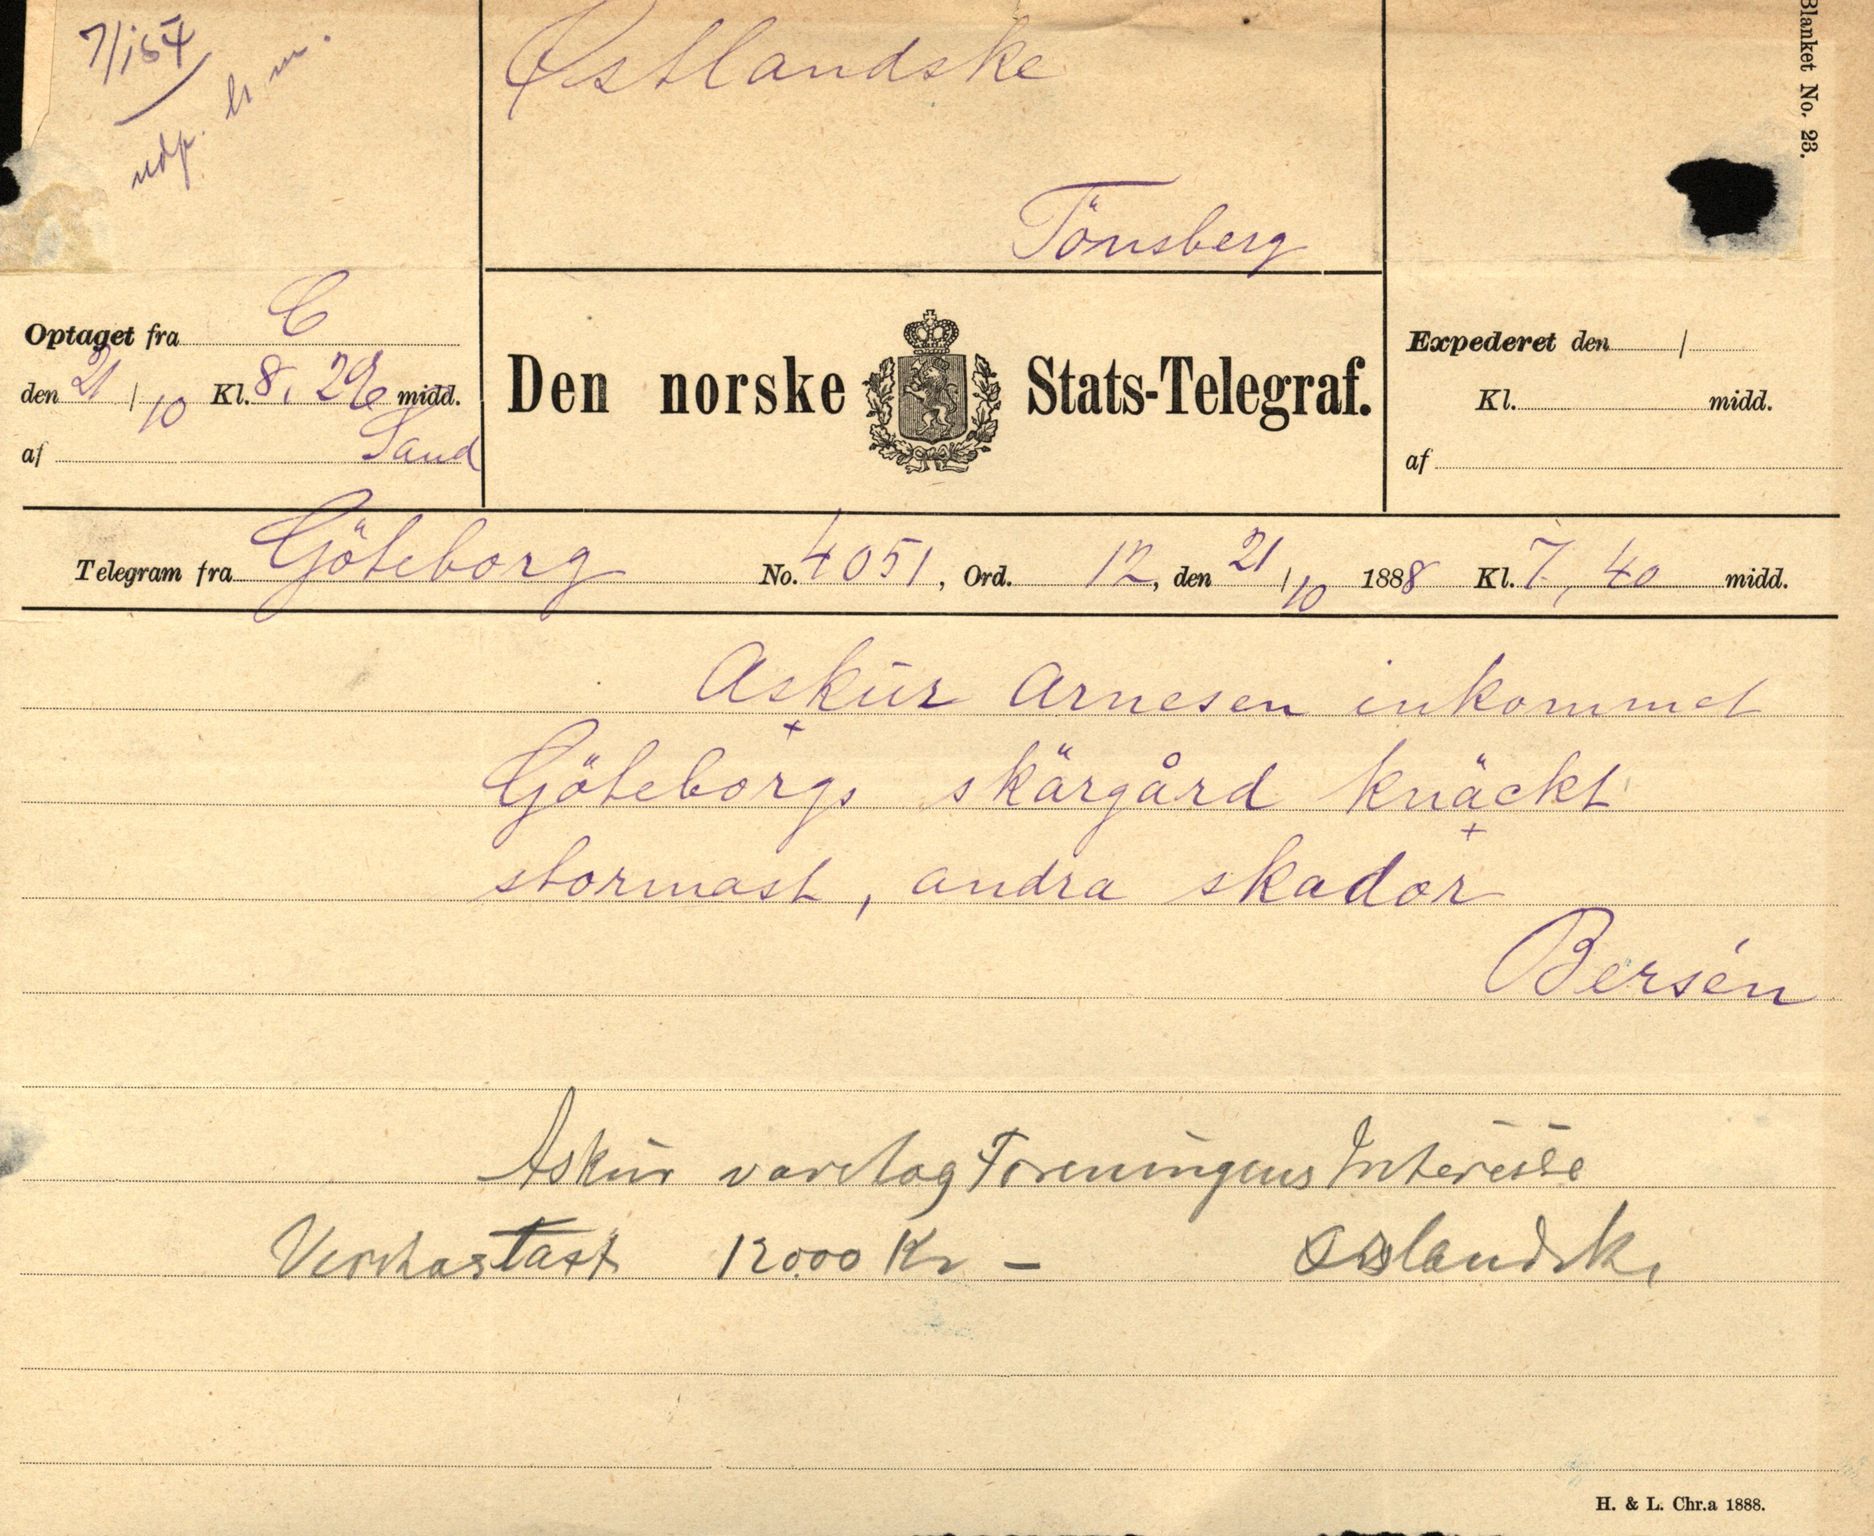 7/154
udp.
Østlandske
Tönsberg
Blanket No. 23.
Optaget fra C
den 21/10 Kl. 8, 29 E midd.
af Sand
Den norske Stats-Telegraf.
Expederet den /
Kl. midd.
af
Telegram fra Göteborg No. 4051, Ord. 12, den 21/10 1888 Kl. 7, 40 midd.
Askur Arnesen inkommet
Göteborgs skärgård knäckt
stormast, andra skador
Bersén
Askur varetag Foreningens Interesse
12000 Kr –
H. & L. Chr.a 1888.